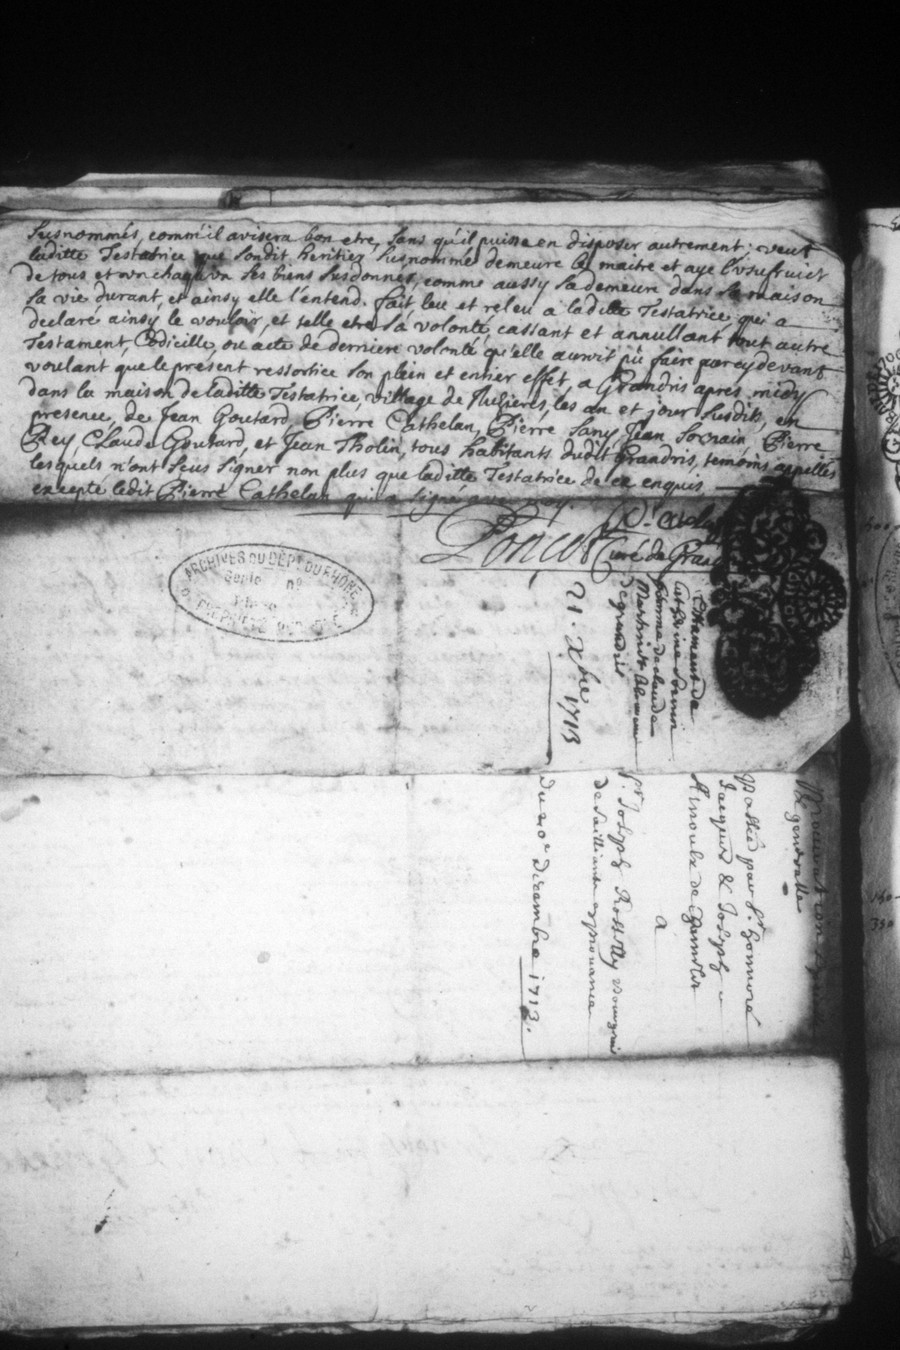 susnommés, comm'il avisera bon etre, sans qu'il puisse en disposer autrement; veut
laditte Testatrice que sondit heritier susnommé demeure le maitre et aye l'vsufruict
de tous et vn chaqu'vn ses biens susdonnés, comme aussy sa demeure dans sa maison
sa vie durant, et ainsy elle l'entend. fait leu et releu a laditte Testatrice qui a
declaré ainsy le vouloir, et telle etre sa volonté, cassant et annullant tout autre
Testament, Codicille, ou acte de derniere volonté qu'elle auroit pû faire parcydevant
voulant que le présent ressortice son plein et entier effet, a Grandris apres midy
dans la maison de laditte Testatrice, village de les an et jour susdits, en
presence, de Jean Goutard, Pierre Cathelan, Pierre Sany, Jean Pierre
Rey, Claude Goutard, et Jean Tholin, tous habitants dudit Grandris, temoins appellés
lesquels n'ont sceus signer non plus que laditte Testatrice de ce enquis,
excepté ledit Pierre Cathelan qui a signé avec moy.
P. Cathelan
Poncet Curé de Grandris
ARCHIVES DU DÉPT. DU RHÔNE
Série n°
PROPRIÉTÉ PUBLIQUE
Testament de
femme de claude
Martin
de grandris
21. Xbre 1713
Procuration
generalle
Passée par Sr.
Jacques & Joseph
de
a
Sr. Joseph
de
Du 20e Décembre 1713.
150
350